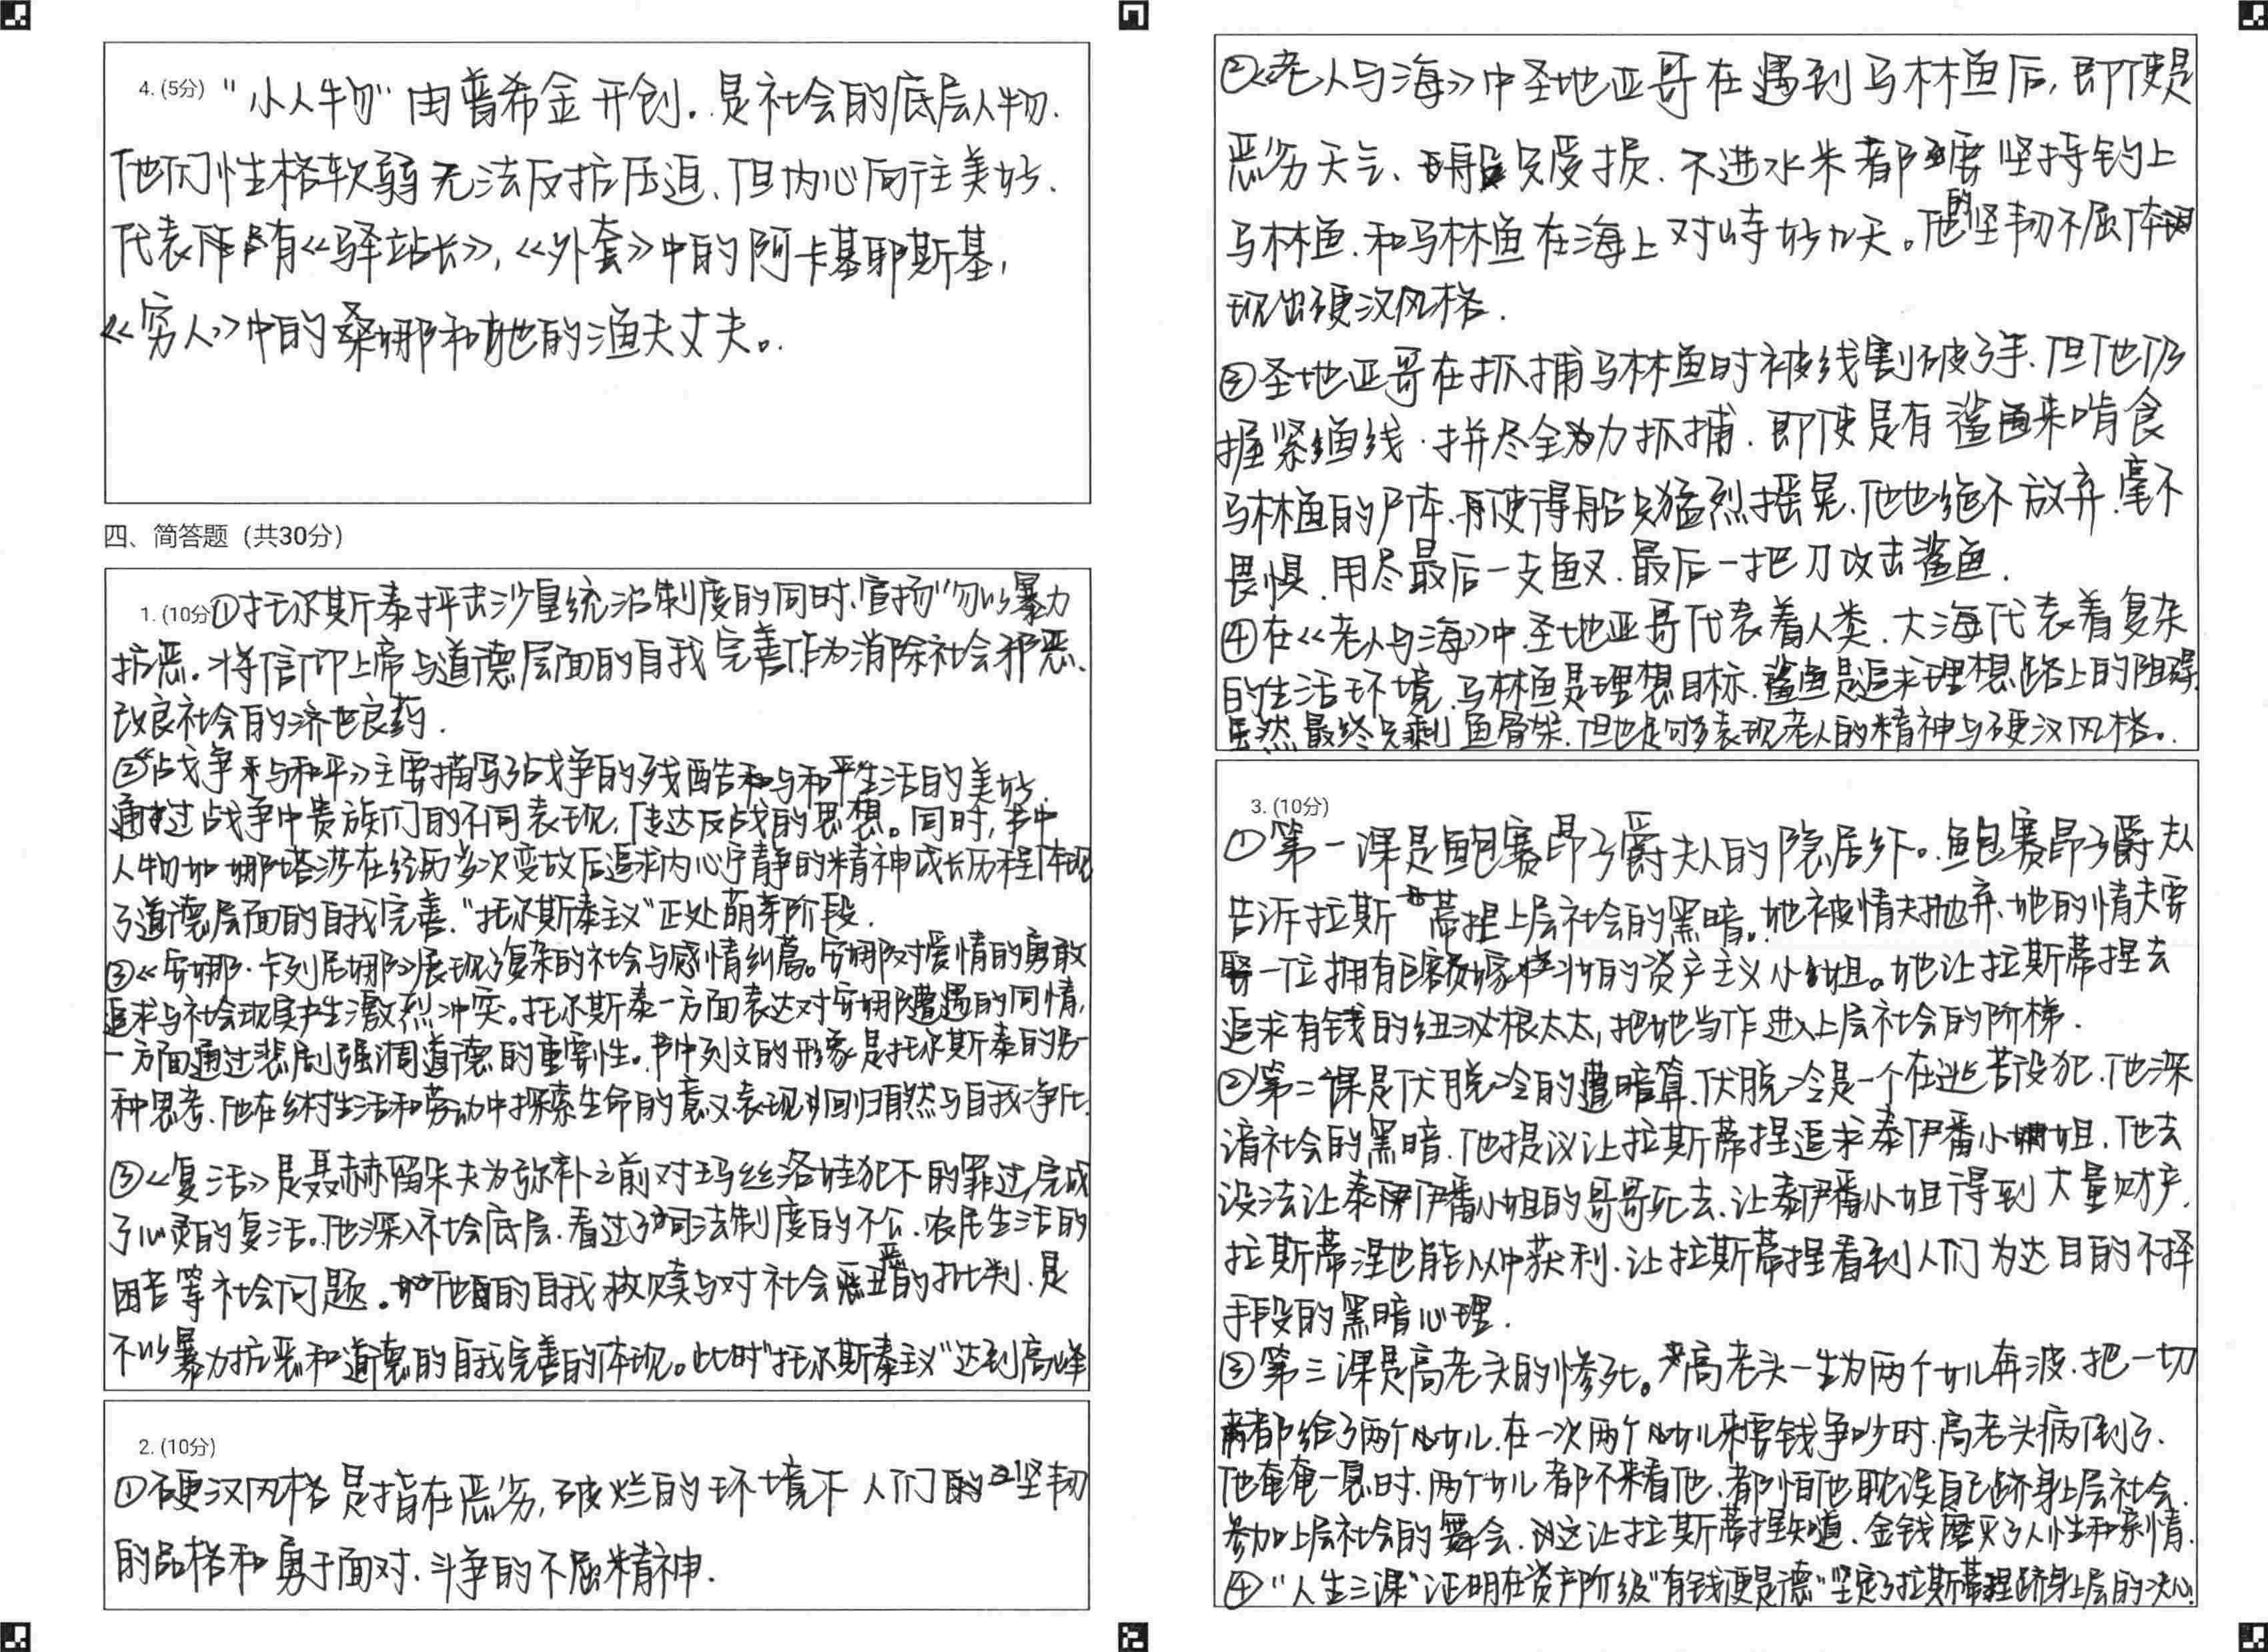 4. (5分) "小人物"由普希金开创。是社会的底层人物.
他们性格软弱无法反抗压迫、但内心向往美好.
代表作有《驿站长》,《外套》中的阿卡基耶斯基,
《穷人》中的桑娜和她的渔夫丈夫。
四、简答题（共30分）
1. (10分) ①托尔斯泰抨击沙皇统治制度的同时、宣扬"勿以暴力
抗恶。将信仰上帝与道德层面的自我完善作为消除社会邪恶、
改良社会的济世良药.
②《战争与和平》主要描写了战争的残酷和与和平生活的美好.
通过战争中贵族们的不同表现,传达反战的思想。同时,书中
人物如娜塔莎在经历多次变故后追求内心宁静的精神成长历程体现
了道德层面的自我完善."托尔斯泰主义"正处萌芽阶段.
③《安娜·卡列尼娜》展现了复杂的社会与感情纠葛。安娜对爱情的勇敢
追求与社会现实产生激烈冲突。托尔斯泰一方面表达对安娜遭遇的同情,
一方面通过悲剧强调道德的重要性。书中列文的形象是托尔斯泰的另一
种思考、他在乡村生活和劳动中探索生命的意义表现归回归自然与自我净化.
③《复活》是聂赫留朵夫为弥补之前对玛丝洛娃犯下的罪过,完成
了心灵的复活。他深入社会底层.看过了司法制度的不公、农民生活的
困苦等社会问题。他的自我救赎与对社会丑恶的批判、是
不以暴力抗恶和道德的自我完善的体现。此时"托尔斯泰主义"达到高峰
2. (10分)
①硬汉风格是指在恶劣,破烂的环境下人们的坚韧
的品格和勇于面对、斗争的不屈精神.
②《老人与海》中圣地亚哥在遇到马林鱼后,即使是
恶劣天气、船只受损、不进水米都要坚持钓上
马林鱼.和马林鱼在海上对峙好几天。他的坚韧不屈体
现出硬汉风格.
③圣地亚哥在抓捕马林鱼时被线割破了手、但他仍
握紧鱼线.拼尽全力抓捕.即使是有鲨鱼来啃食
马林鱼的尸体、再使得船只猛烈摇晃、他也绝不放弃.毫不
畏惧.用尽最后一支鱼叉.最后一把刀攻击鲨鱼.
④在《老人与海》中.圣地亚哥代表着人类.大海代表着复杂
的生活环境.马林鱼是理想目标.鲨鱼是追求理想路上的阻碍.
虽然最终只剩鱼骨架.但也足够表现老人的精神与硬汉风格。
3. (10分)
①第一课是鲍赛昂子爵夫人的隐居乡下。鲍赛昂子爵夫人
告诉拉斯蒂捏上层社会的黑暗。她被情夫抛弃.她的情夫要
娶一位拥有巨额嫁妆的资产主义小姐。她让拉斯蒂捏去
追求有钱的纽沁根太太,把她当作进入上层社会的阶梯.
②第二课是伏脱冷的暗算.伏脱冷是一个在逃苦役犯.他深
谙社会的黑暗.他提议让拉斯蒂捏追求泰伊番小姐.他去
设法让泰伊番小姐的哥哥死去.让泰伊番小姐得到大量财产.
拉斯蒂涅也能从中获利.让拉斯蒂捏看到人们为达目的不择
手段的黑暗心理.
③第三课是高老头的惨死。高老头一生为两个女儿奔波.把一切
都给了两个女儿.在一次两个女儿来要钱争吵时.高老头病倒了.
他奄奄一息时.两个女儿都不来看他.都怕他耽误自己跻身上层社会.
参加上层社会的舞会.这让拉斯蒂捏知道.金钱磨灭了人性和亲情.
④"人生三课"证明在资产阶级"有钱便是德"坚定了拉斯蒂捏跻身上层的决心.